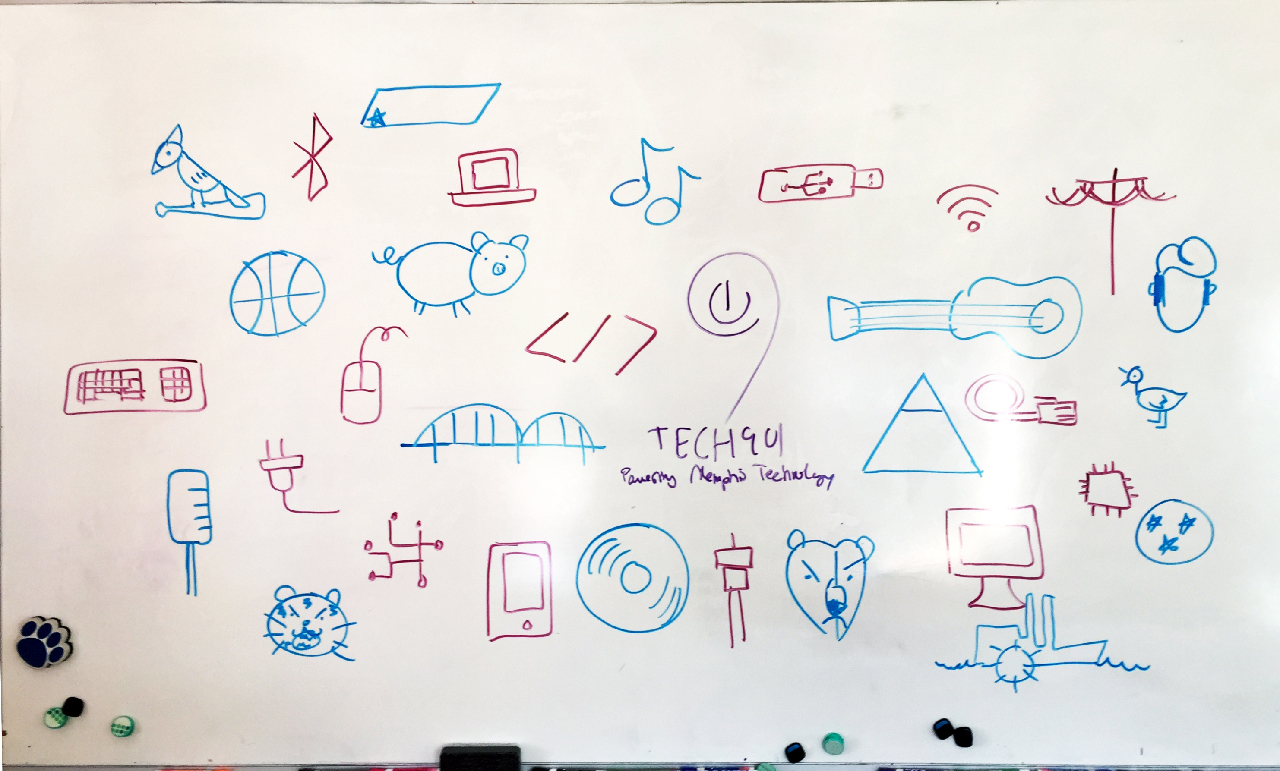 </>
TECH901
Powering Memphis Technology